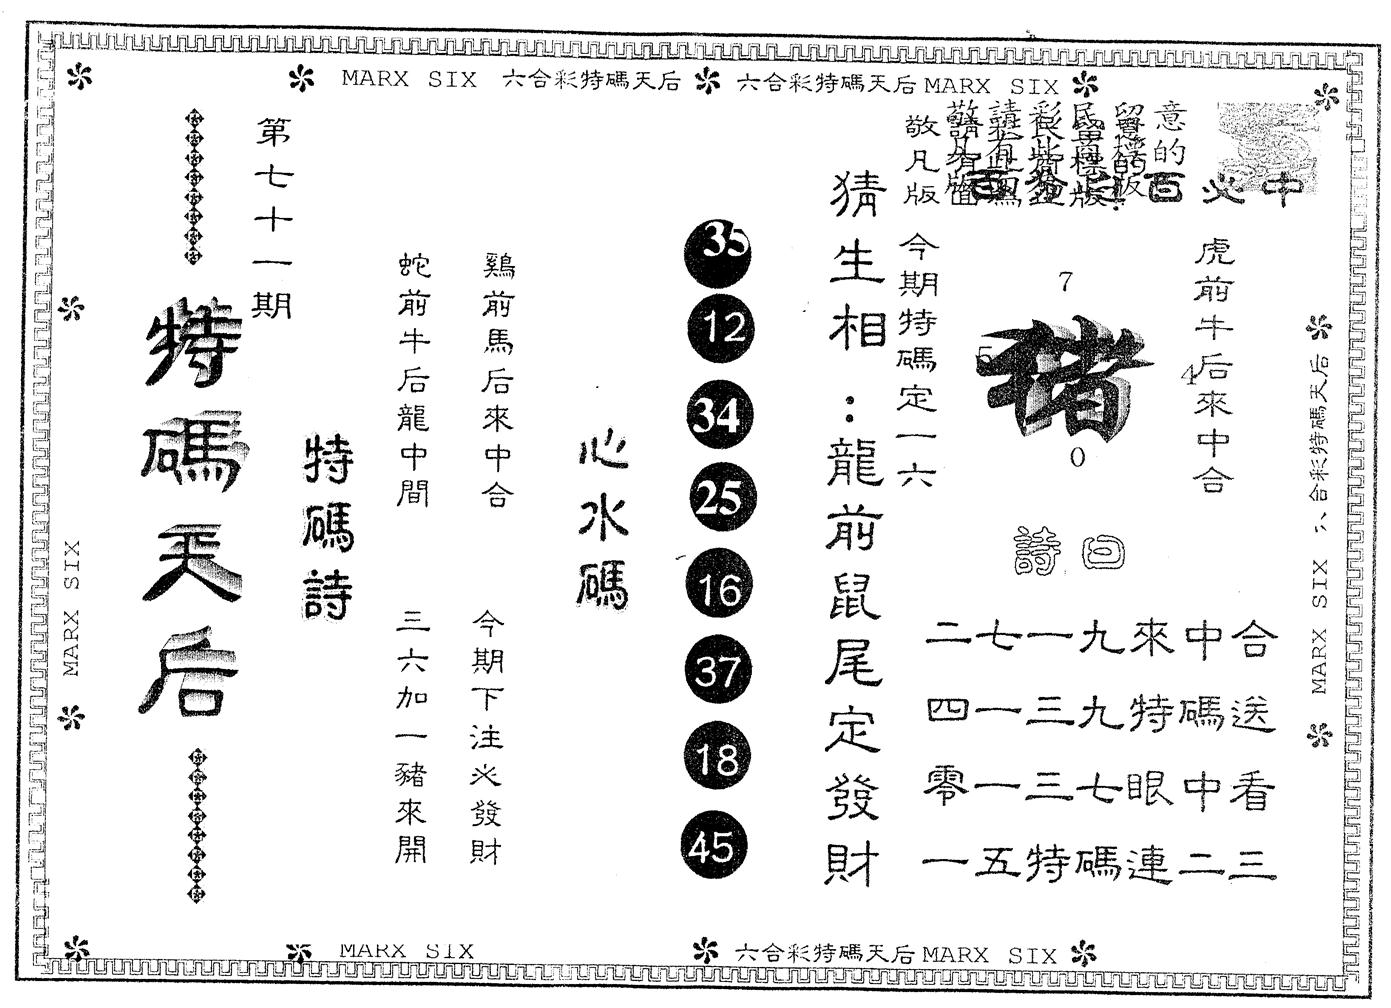 MARX SIX 六合彩特碼天后
六合彩特碼天后 MARX SIX
第七十一期
特碼天后
特碼詩
鷄前馬后來中合
蛇前牛后龍中間
今期下注必發財
三六加一豬來開
心水碼
35
12
34
25
16
37
18
45
猜生相：龍前鼠尾定發財
今期特碼定一六
百必中
虎前牛后來中合
7
5
豬
4
0
詩曰
二七一九來中合
四一三九特碼送
零一三七眼中看
一五特碼連二三
MARX SIX
MARX SIX 六合彩特碼天后
MARX SIX
六合彩特碼天后 MARX SIX